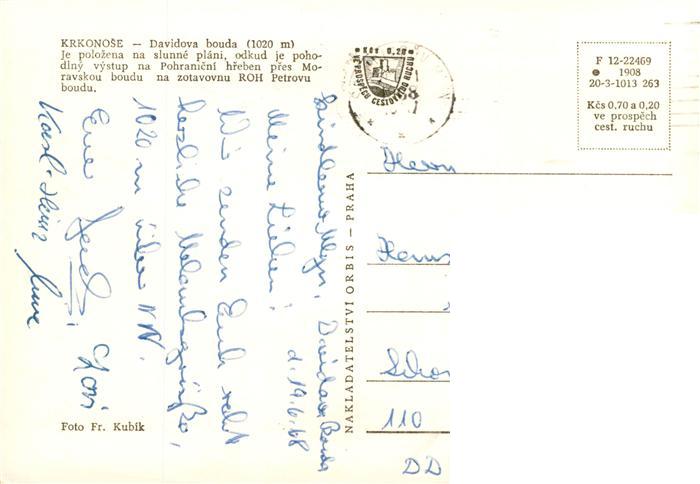 KRKONOŠE — Davidova bouda (1020 m)
Je položena na slunné pláni, odkud je poho-
dlný výstup na Pohraniční hřeben přes Mo-
ravskou boudu na zotavovnu ROH Petrovu
boudu.
Kčs 0,20
VE PROSPĚCH CESTOVNÍHO RUCHU
F 12-22469
1908
20-3-1013 263
Kčs 0.70 a 0,20
ve prospěch
cest. ruchu
Mlýn, Davidova Bouda
d. 19.6.68
Meine Lieben!
Wir senden Euch recht
herzliche Urlaubsgrüße,
1020 m über NN.
Eure
Karl-Heinz
NAKLADATELSTVÍ ORBIS — PRAHA
Herrn
110
DD
Foto Fr. Kubík